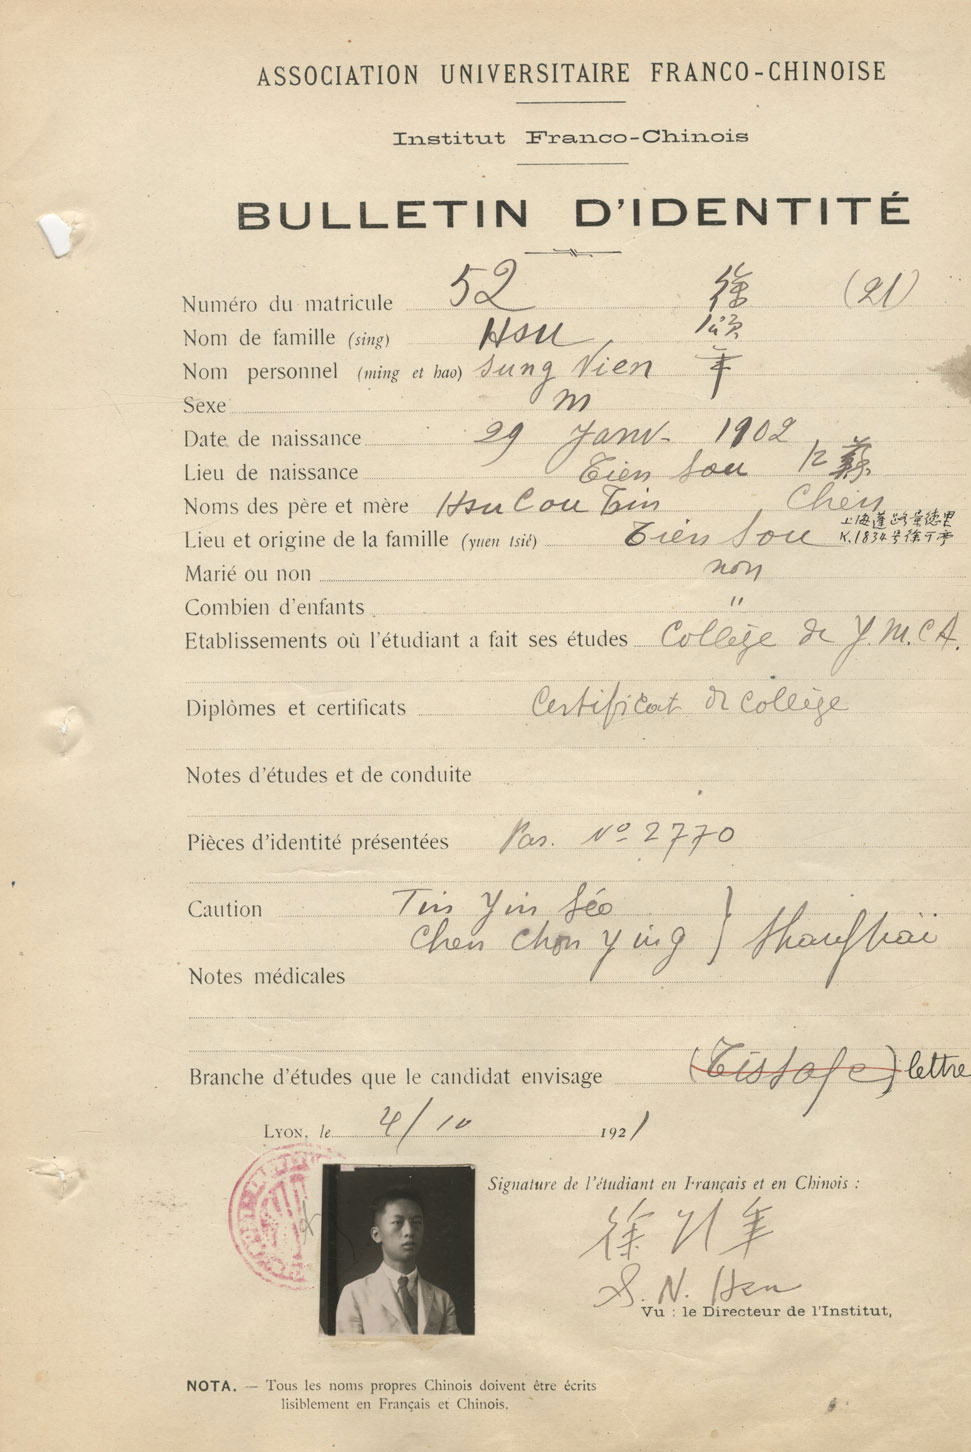 ASSOCIATION UNIVERSITAIRE FRANCO-CHINOISE
Institut Franco-Chinois
BULLETIN D'IDENTITÉ
Numéro du matricule 52 徐 (21)
Nom de famille (sing) Hsu 頌
Nom personnel (ming et hao) Sung Nien 年
Sexe m
Date de naissance 29 Janv. 1902
Lieu de naissance Tien Sou 江蘇
Noms des père et mère Hsu Cou Tsin Chen
Lieu et origine de la famille (yuen tsié) Tien Sou 上海蓬路景德里
K.1834号徐
Marié ou non non
Combien d'enfants "
Etablissements où l'étudiant a fait ses études Collège de Y.M.C.A.
Diplômes et certificats Certificat de Collège
Notes d'études et de conduite
Pièces d'identité présentées Pas. No 2770
Caution Tin Yin Séo
Chen Chon Ying } Shanghaï
Notes médicales
Branche d'études que le candidat envisage (Tissage) lettre
LYON, le 4/10 1921
Signature de l'étudiant en Français et en Chinois :
徐 年
S. N. Hsu
Vu : le Directeur de l'Institut,
NOTA. — Tous les noms propres Chinois doivent être écrits
lisiblement en Français et Chinois.